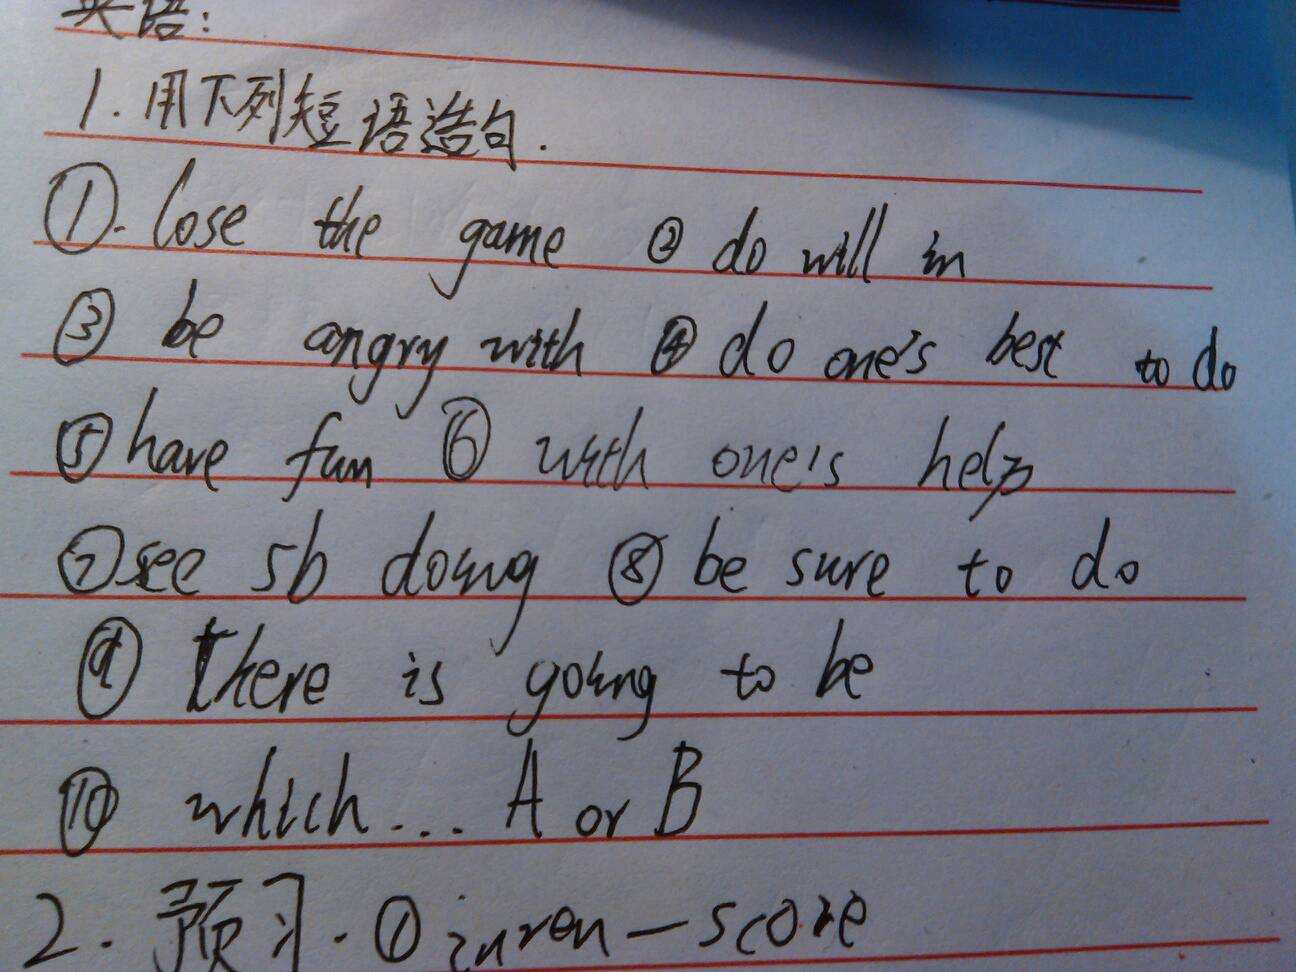 英语:
1.用下列短语造句.
①. lose the game ② do will in
③ be angry with ④ do one's best to do
⑤ have fun ⑥ with one's help
⑦ see sb doing ⑧ be sure to do
⑨ there is going to be
⑩ which... A or B
2.预习.① — score